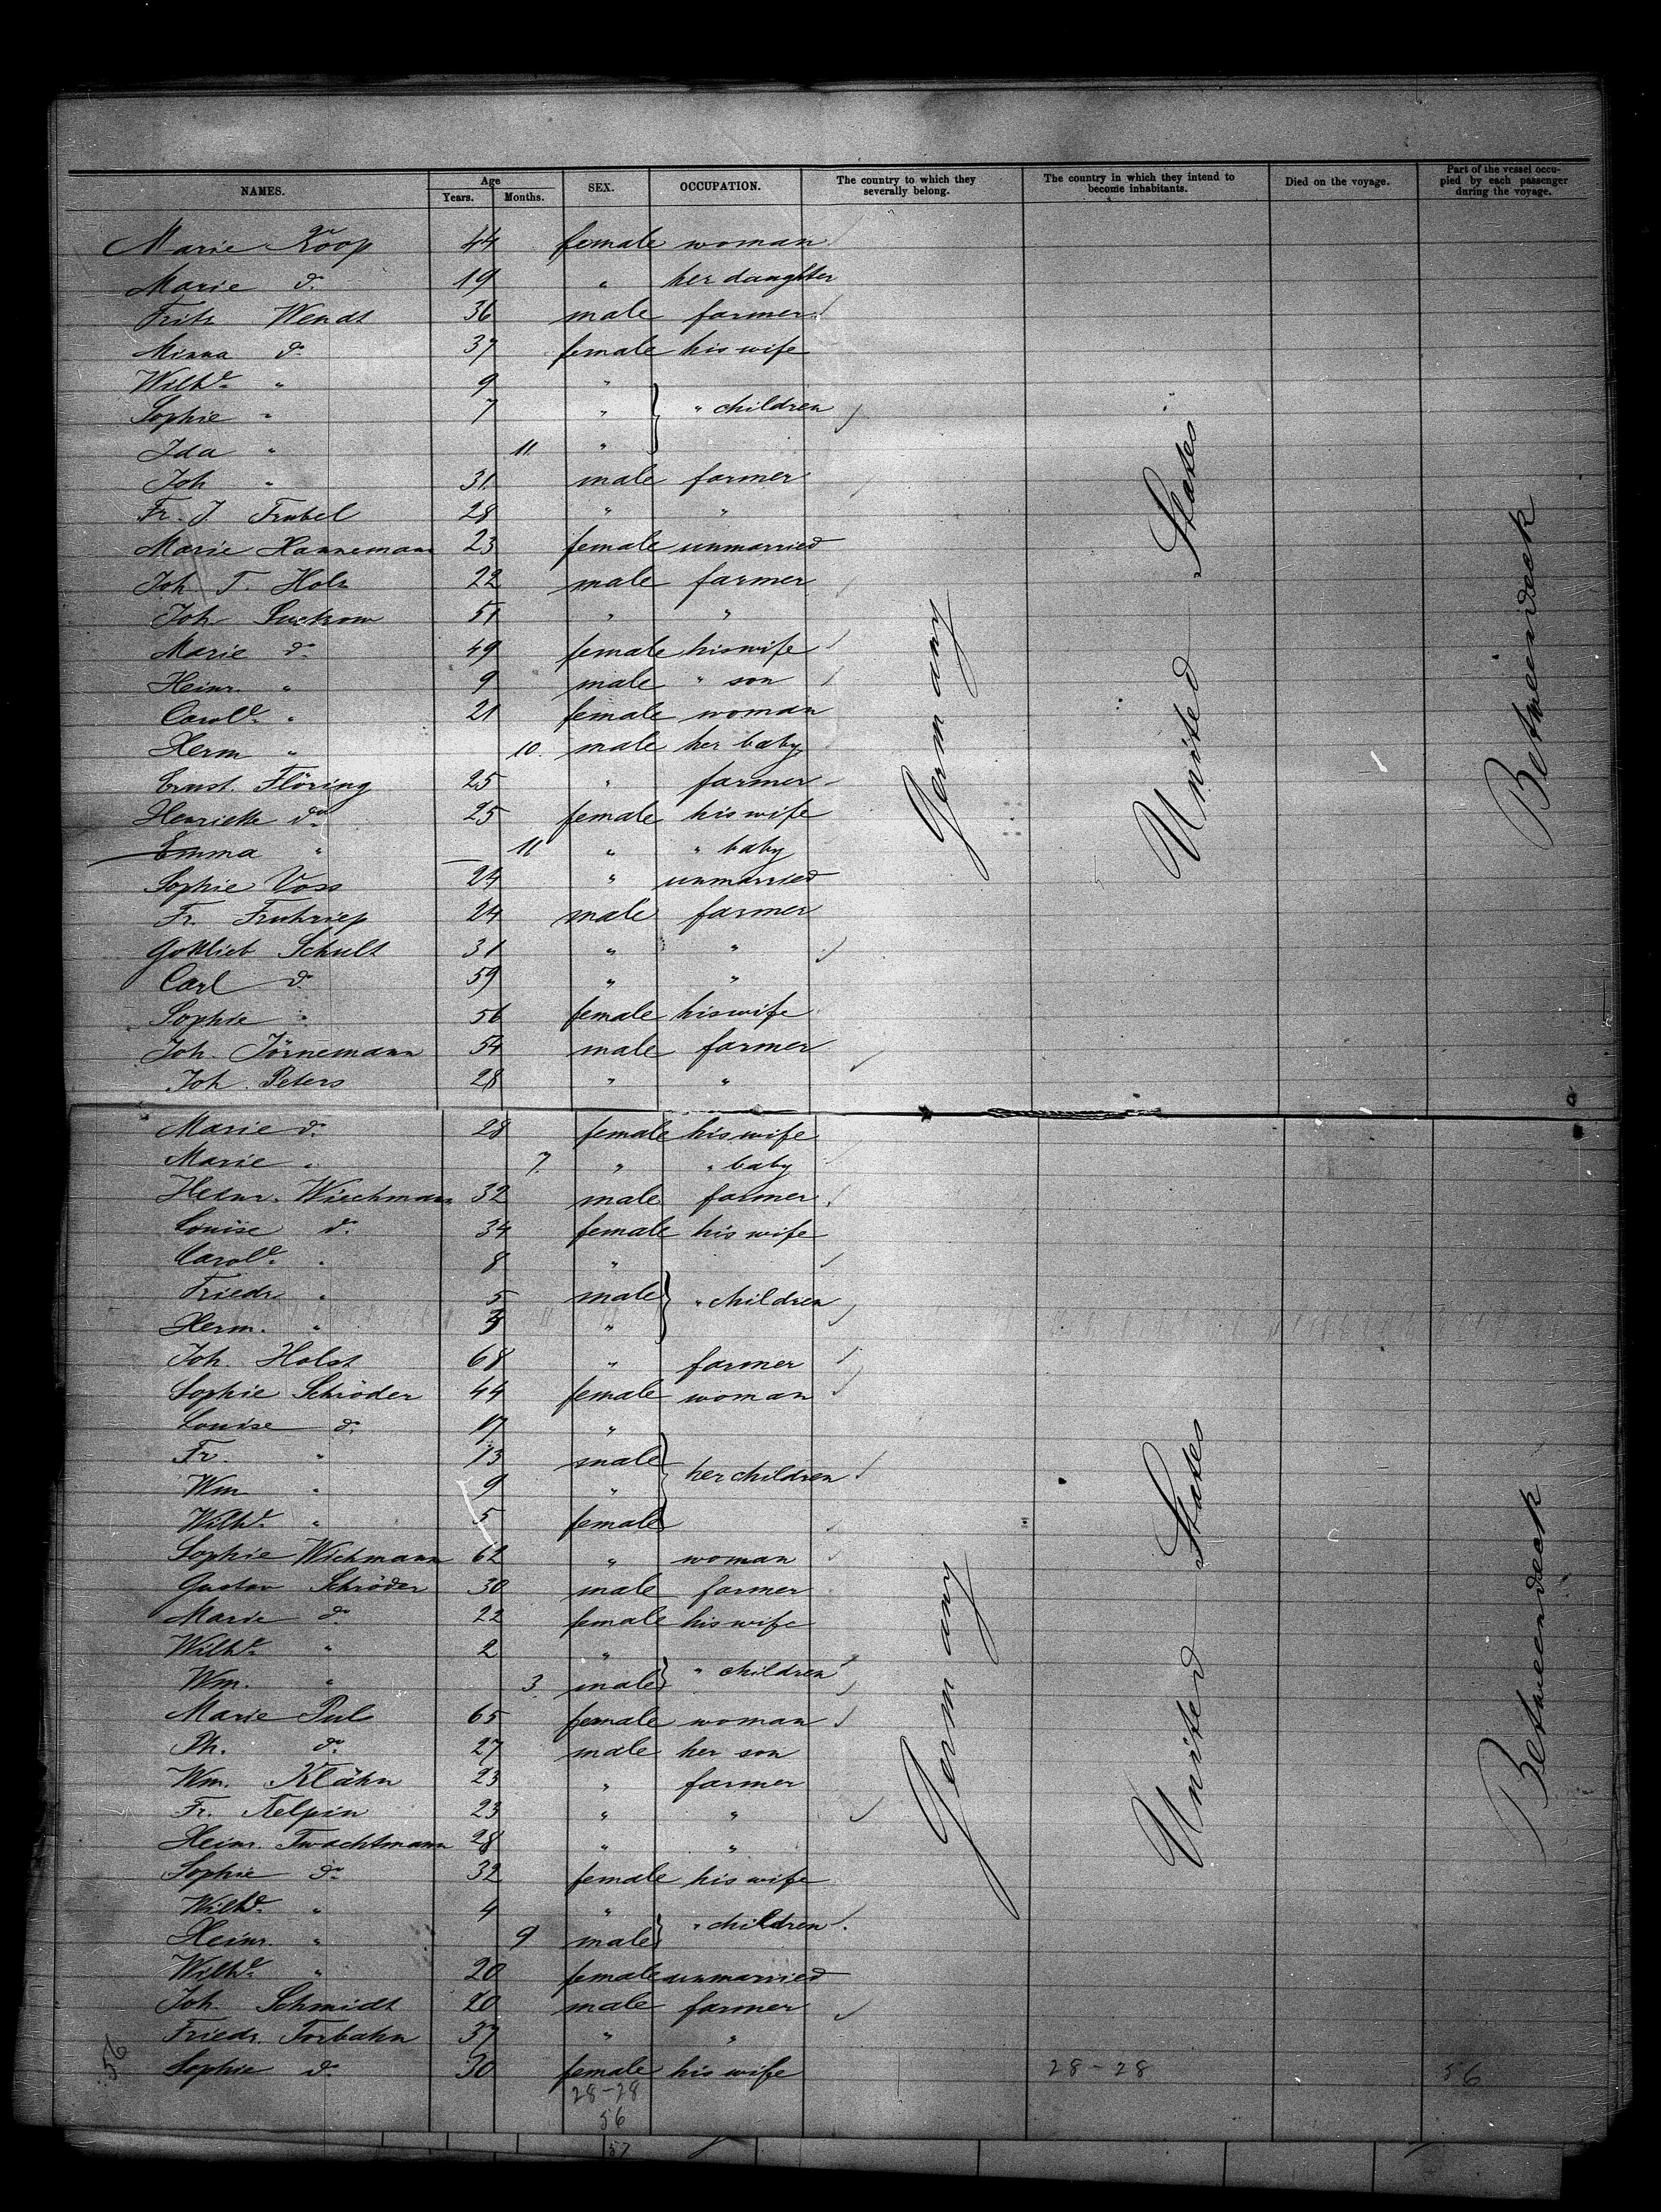 NAMES. Age SEX. OCCUPATION. The country to which they severally belong. The country in which they intend to become inhabitants. Died on the voyage. Part of the vessel occupied by each passenger during the voyage.
Years. Months.
Marie Koop 44 female woman
Marie do 19 " her daughter
Fritz Wendt 36 male farmer
Minna do 37 female his wife
Wilhe " 9 "
Sophie " 7 " " children
Ida " 11 "
Joh " 31 male farmer
Fr. J. Trubel 28 " "
Marie Hannemann 23 female unmarried
Joh. T. Holz 22 male farmer
Joh Suckow 51 " "
Marie do 49 female his wife
Heinr. " 9 male " son
Carole " 21 female woman
Herm " 10 male her baby
Ernst Flöring 25 " farmer
Henriette do 25 female his wife
Emma " 11 " " baby
Sophie Voss 24 " unmarried
Fr. Fruhriep 24 male farmer
Gottlieb Schult 31 " "
Carl do 59 " "
Sophie " 56 female his wife
Joh. Jörnemann 54 male farmer
Joh. Peters 28 " "
Germany United States Betweendeck
Marie do 28 female his wife
Marie " 7 " " baby
Heinr. Wischmann 32 male farmer
Louise do 34 female his wife
Carole " 8 "
Friedr " 5 male " children
Herm. " 3 "
Joh. Holst 68 " farmer
Sophie Schröder 44 female woman
Louise do 17 "
Fr. " 13 male her children
Wm " 9 "
Wilhe " 5 female
Sophie Wichmann 62 " woman
Gustav Schröder 30 male farmer
Marie do 22 female his wife
Wilhe " 2 " " children
Wm. " 3 male
Marie Puls 65 female woman
Ph. do 27 male her son
Wm. Klähn 23 " farmer
Fr. Kelpin 23 " "
Heinr. Twachtmann 28 " "
Sophie do 32 female his wife
Wilhe " 4 " " children
Heinr. " 9 male
Wilhe " 20 female unmarried
Joh. Schmidt 20 male farmer
Friedr. Torbahn 37 " "
Sophie do 30 female his wife
Germany United States Betweendeck
56
28-28 56
28-28
56
57